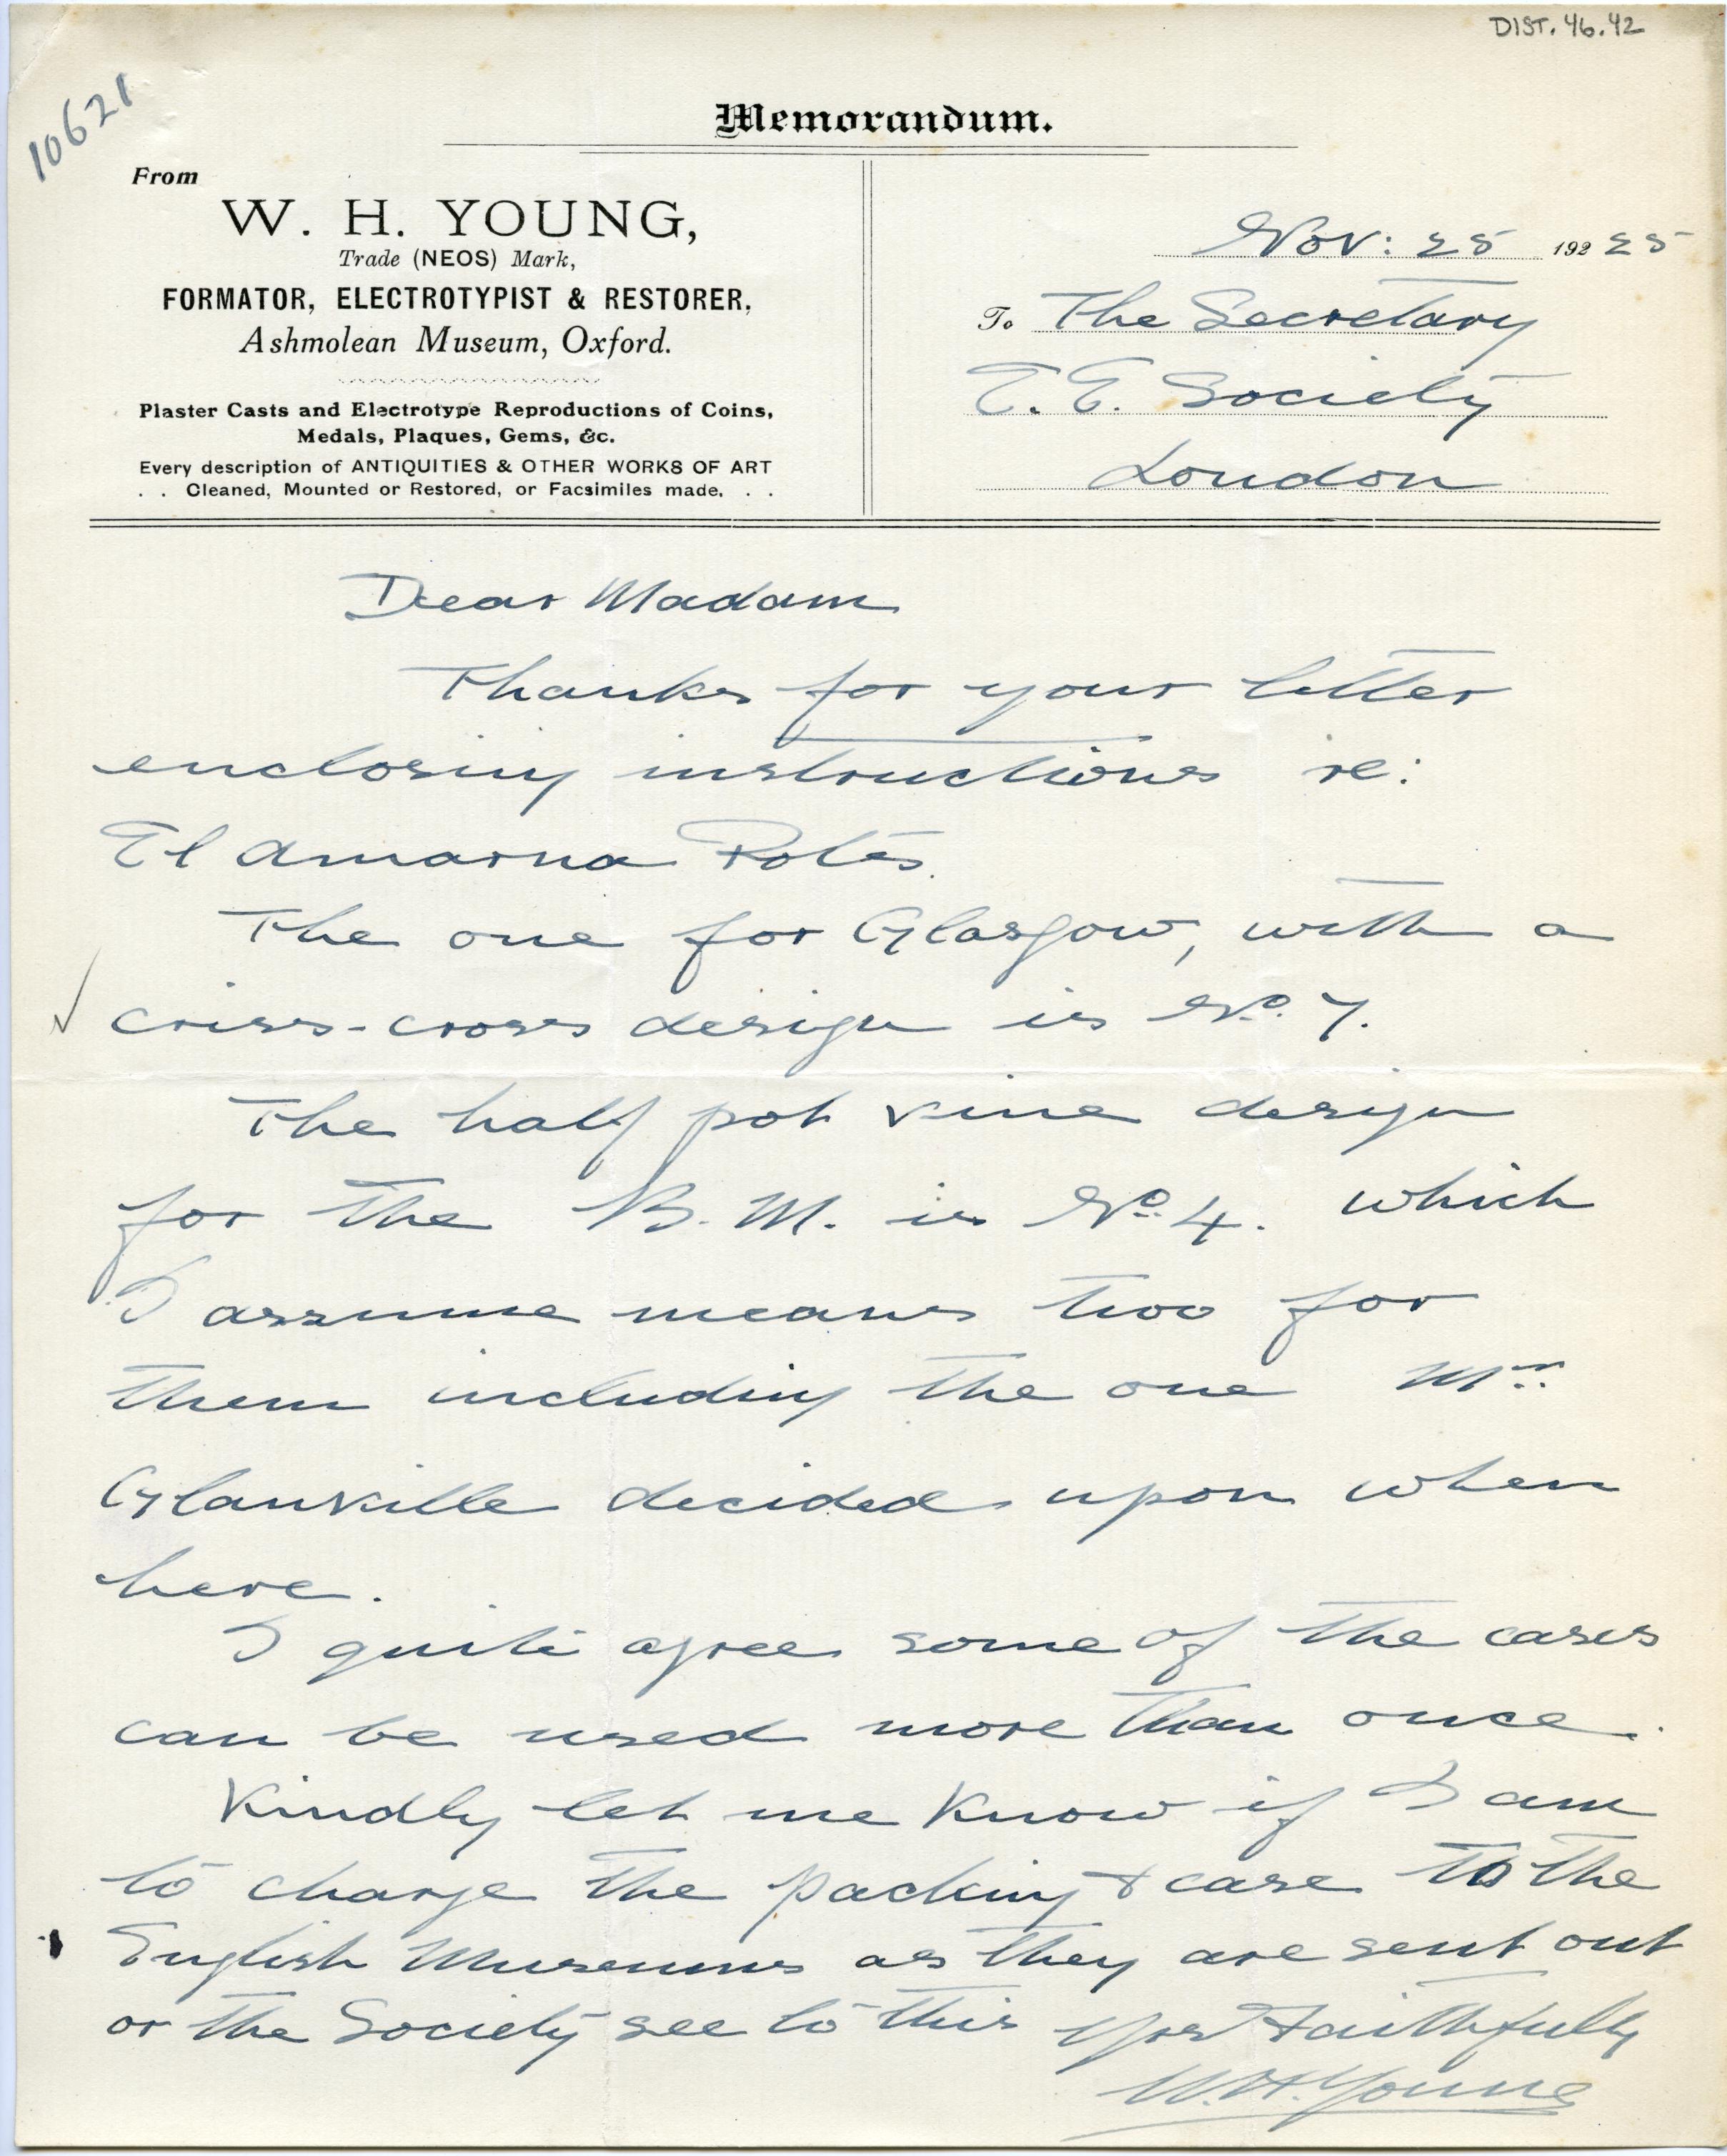 DIST. 46.42
10621
Memorandum.
From
W. H. YOUNG,
Trade (NEOS) Mark,
FORMATOR, ELECTROTYPIST & RESTORER,
Ashmolean Museum, Oxford.
Plaster Casts and Electrotype Reproductions of Coins,
Medals, Plaques, Gems, &c.
Every description of ANTIQUITIES & OTHER WORKS OF ART
. . Cleaned, Mounted or Restored, or Facsimiles made. . .
Nov: 25 192 25
To The Secretary
E. E. Society
London
Dear Madam
Thanks for your letter
enclosing instructions re:
El Amarna Pots.
The one for Glasgow, with a
criss-cross design is No. 7.
The half pot vine design
for the B. M. is No. 4. which
I assume means two for
them including the one Mr.
Glanville decided upon when
here.
I quite agree some of the cases
can be used more than once.
Kindly let me know if I am
to charge the packing & case to the
English Museums as they are sent out
or the Society see to this Yrs Faithfully
W. H. Young